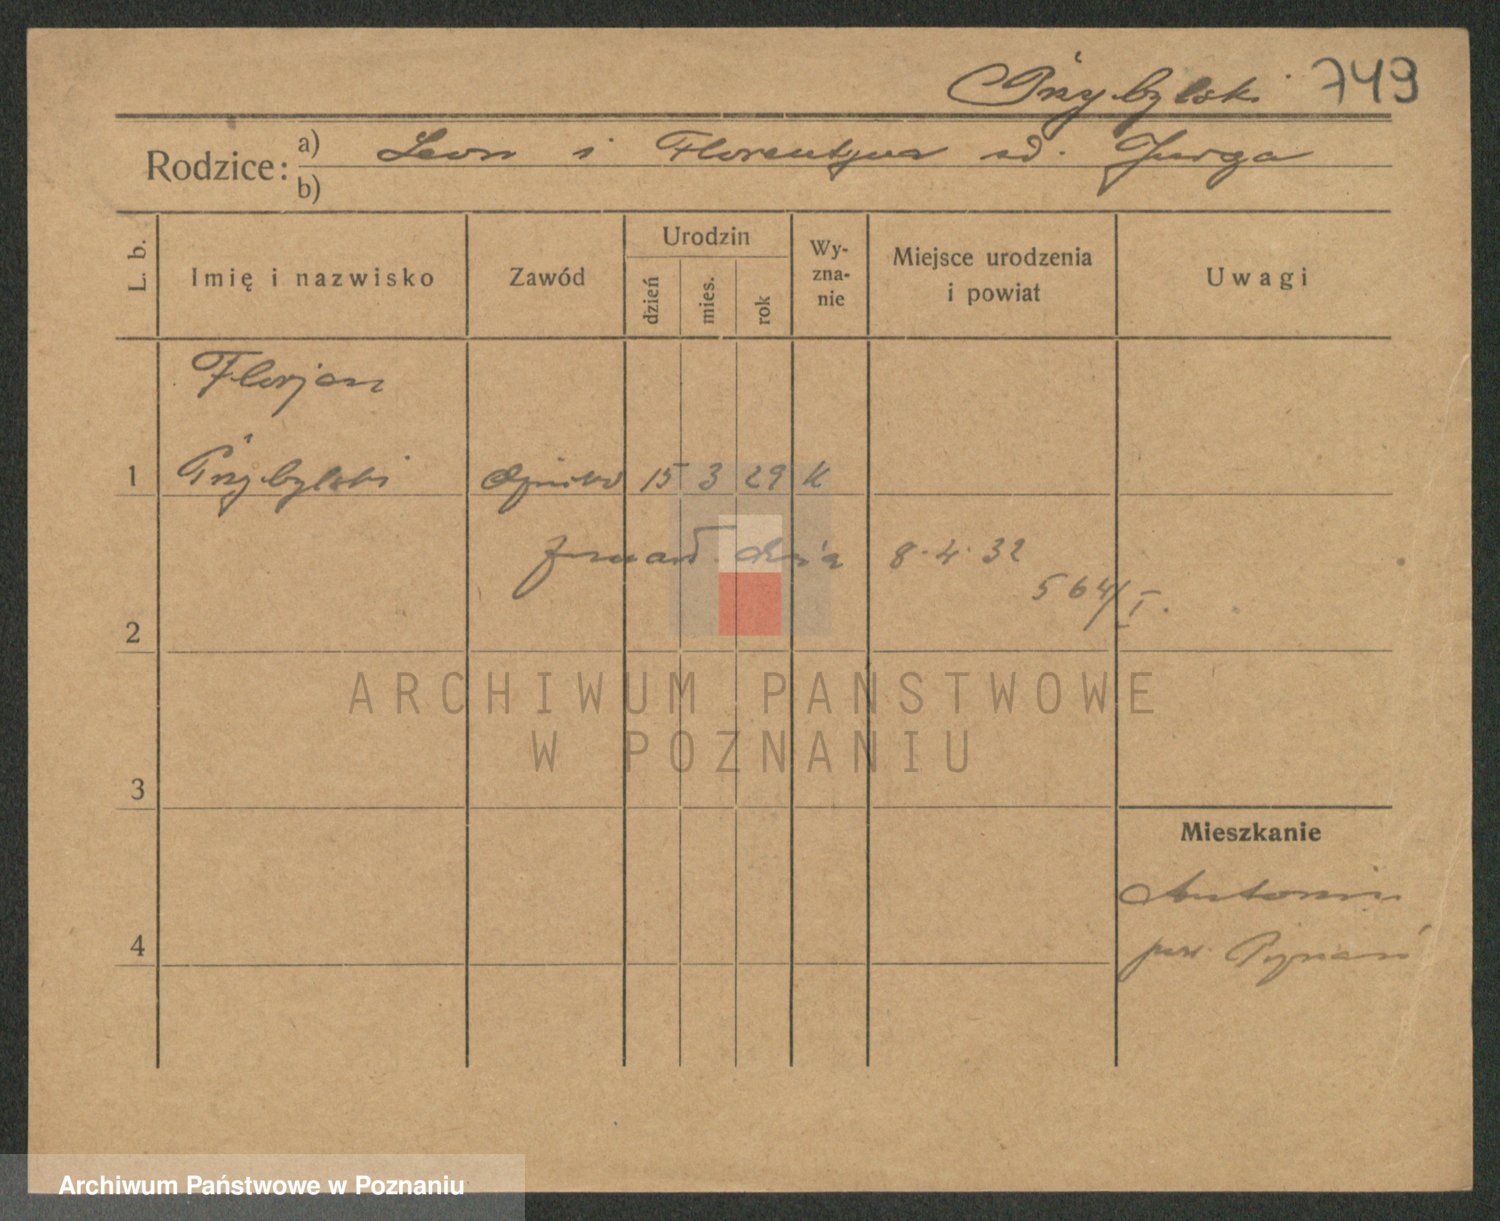 Przybylski 749
Rodzice: a) Leon i Florentyna ud. Jurga
b)
L. b.
Imię i nazwisko
Zawód
Urodzin
dzień
mies.
rok
Wy-
zna-
nie
Miejsce urodzenia
i powiat
Uwagi
Florjan
1 Przybylski 15 3 29 K
zmarł dnia 8.4.32
564/I.
2
ARCHIWUM PAŃSTWOWE
W POZNANIU
3
Mieszkanie
Antonin
pow. Poznań
4
Archiwum Państwowe w Poznaniu